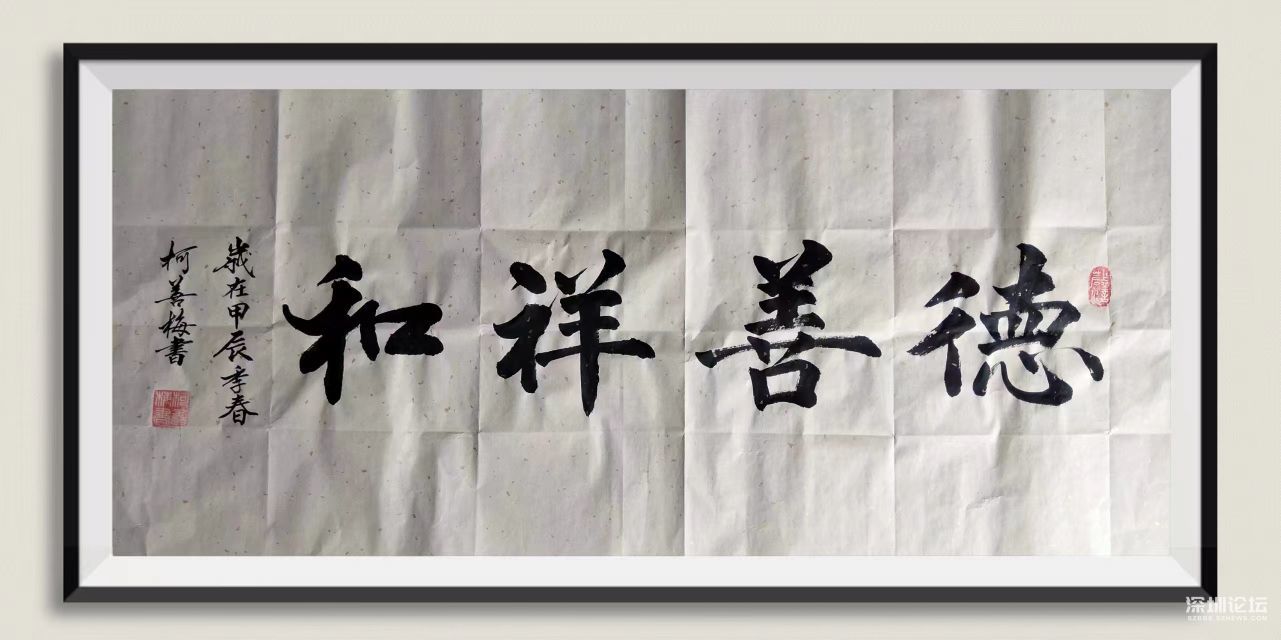 德善祥和
歲在甲辰季春
柯善梅書
深圳论坛
SZBBS.SZNEWS.COM